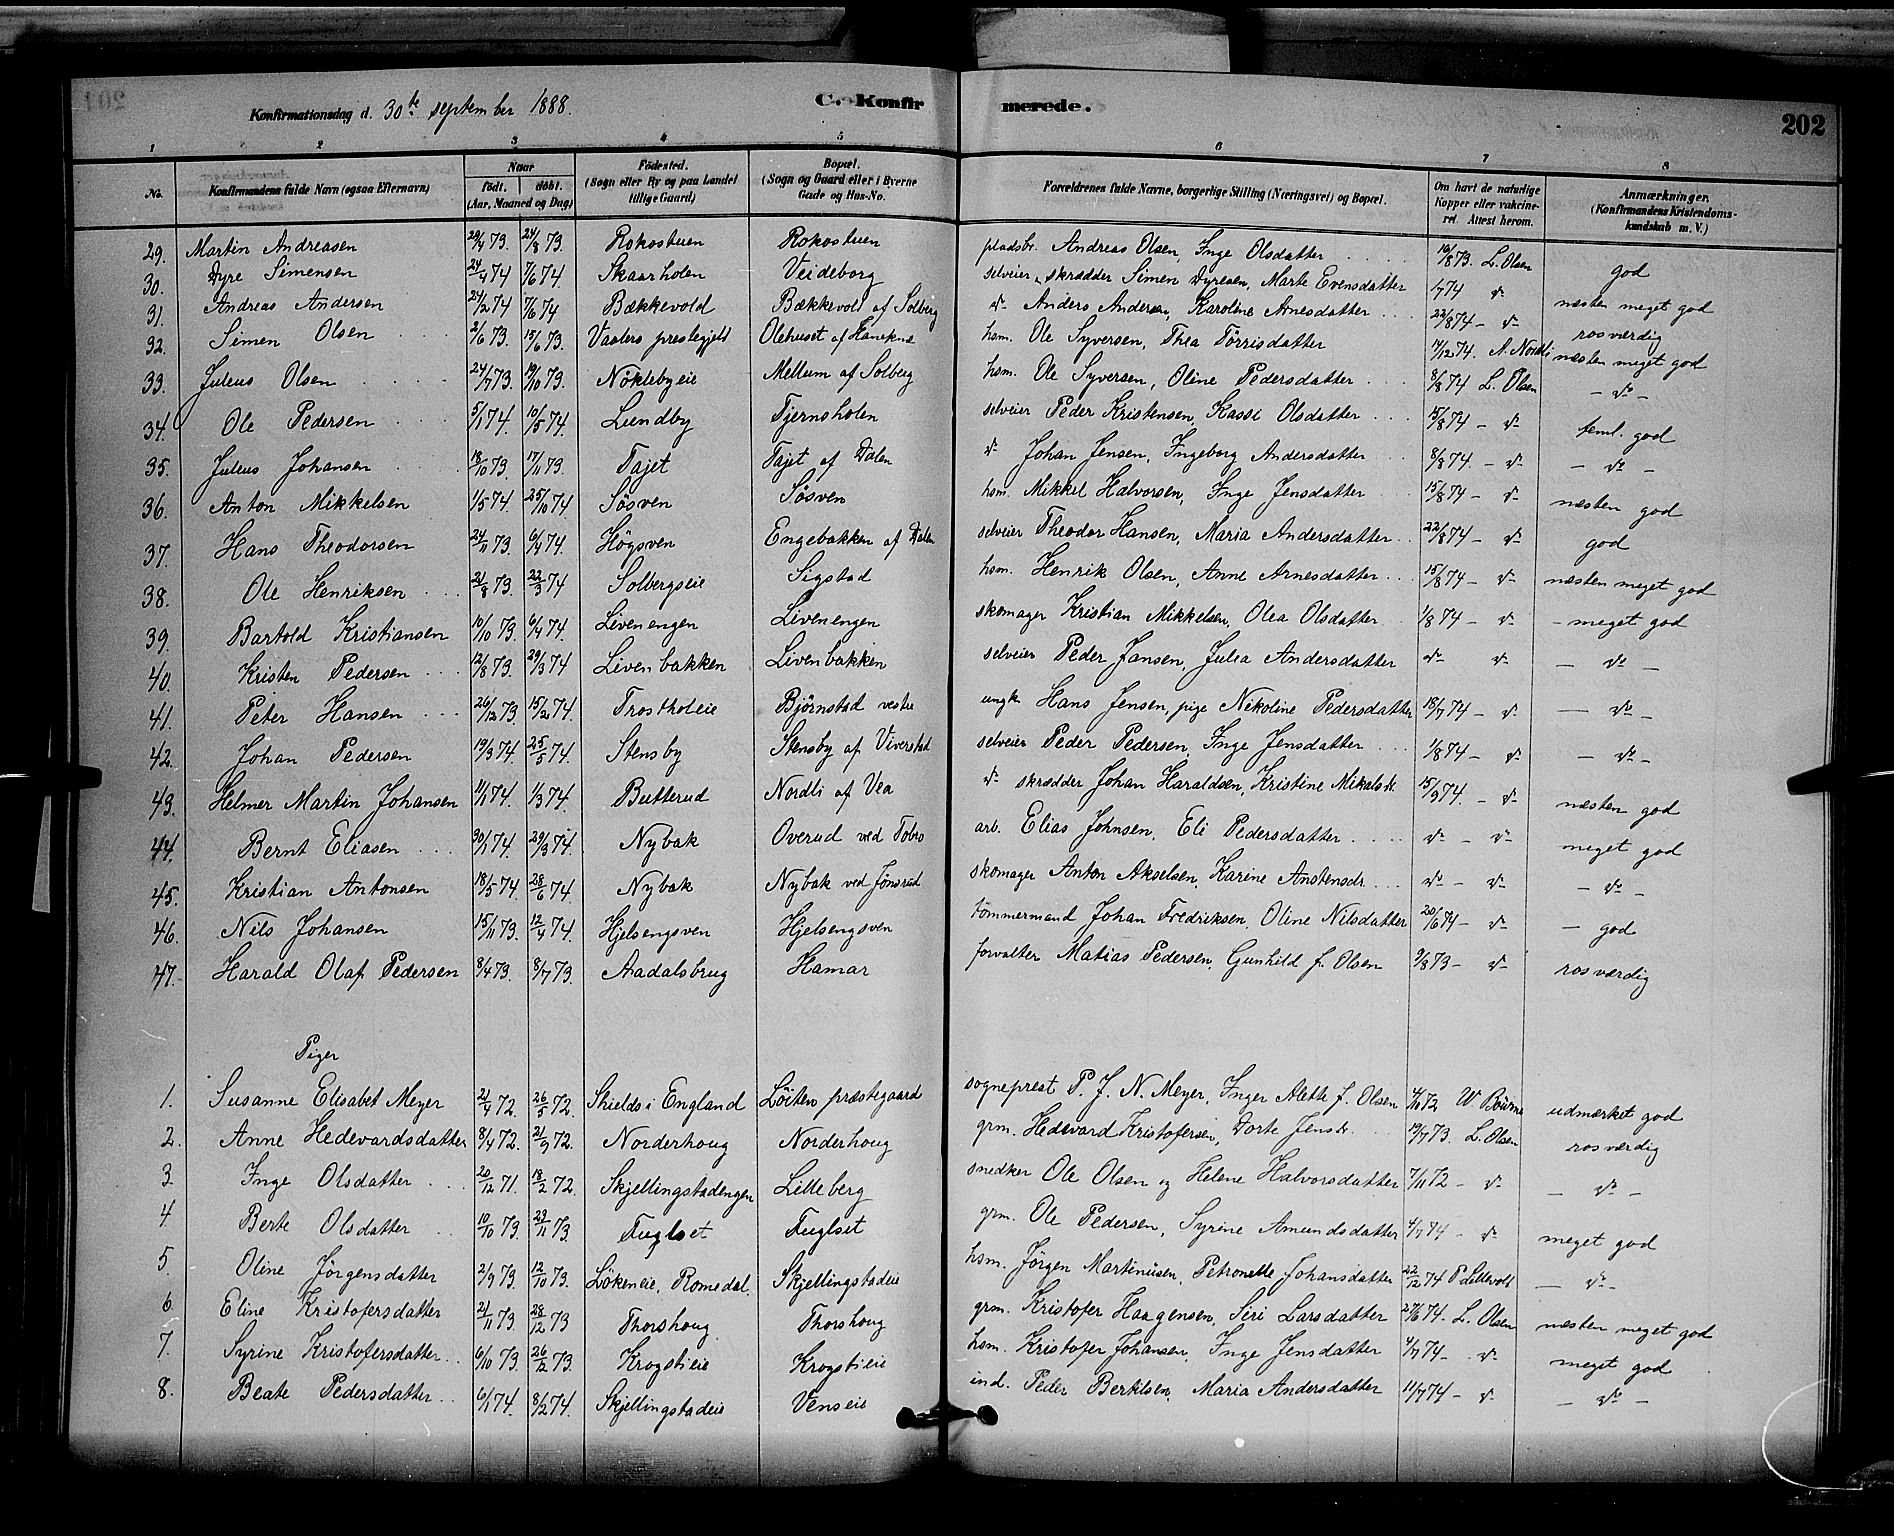 201
Konfirmationsdag d. 30te september 1888.
C. Konfirmerede.
202
1 2 3 4 5 6 7 8
No. | Konfirmandens fulde Navn (ogsaa Efternavn) | Naar født. døbt. (Aar, Maaned og Dag) | Fødested. (Sogn eller By og paa Landet tillige Gaard) | Bopæl. (Sogn og Gaard eller i Byerne Gade og Hus-No. | Forældrenes fulde Navne, borgerlige Stilling (Næringsvei) og Bopæl. | Om havt de naturlige Kopper eller vakcineret. Attest herom. | Anmærkninger. (Konfirmandens Kristendomskundskab m. V.)
29. Martin Andreasen 29/4 73. 24/8 73. Rokostuen Rokostuen pladsbr. Andreas Olsen, Inge Olsdatter 19/8 73. L. Olsen god
30. Dyre Simensen 24/4 74 7/6 74. Skaarholen Veideborg selveier, skrædder Simen Dyresen, Marte Evensdatter 1/7 74 do næsten meget god
31. Andreas Andersen 24/2 74 7/6 74 Bækkevold Bækkevold af Solberg do Anders Andersen, Karoline Arnesdatter 22/8 74 - do rosværdig
32. Simen Olsen 2/6 73. 15/6 73. Vaalers prestegjeld Olehuset af hsm. Ole Syversen, Thea Törrisdatter 17/12 74. næsten meget god
33. Julius Olsen 24/7 73. 19/10 73. Nöklebyeie Mellum af Solberg hsm. Ole Syversen, Oline Pedersdatter 8/8 74 L. Olsen - do -
34. Ole Pedersen 5/1 74. 10/5 74. Lundby Tjernsholen selveier Peder Kristensen, Kassi Olsdatter 15/8 74 - do teml. god
35. Julius Johansen 18/10 73. 17/11 73. Tajet Tajet af Dalen do Johan Jensen, Ingeborg Andersdatter 8/8 74. - do - do -
36. Anton Mikkelsen 1/5 74. 25/10 74. Sösven Sösven hsm. Mikkel Halvorsen, Inge Jensdatter 15/8 74 - do næsten god
37. Hans Theodorsen 24/11 73. 6/4 74. Högsven Engebakken af Dalen selveier Theodor Hansen, Maria Andersdatter 22/8 74 - do god
38. Ole Henriksen 21/8 73. 22/3 74 Solbergseie Sigstad hsm. Henrik Olsen, Anne Arnesdatter 15/8 74 - do næsten meget god
39. Bartold Kristiansen 10/10 73. 6/4 74. Livenengen Livenengen skomager Kristian Mikkelsen, Olea Olsdatter 1/8 74 - do - meget god
40. Kristen Pedersen 12/8 73. 29/3 74 Livenbakken Livenbakken selveier Peder Jansen, Julia Andersdatter do do - do -
41. Peter Hansen 26/12 73. 15/2 74. Frostholeie Björnstad vestre ungk. Hans Jensen, pige Nikoline Pedersdatter 18/7 74 - do - do -
42. Johan Pedersen 19/3 74. 25/5 74. Stensby Stensby af Viverstad selveier Peder Pedersen, Inge Jensdatter 1/8 74 - do - do -
43. Helmer Martin Johansen 11/1 74. 1/3 74. Butterud Nordli af Vea do skrædder Johan Haraldsen, Kristine Mikalsdr. 15/9 74. - do næsten god
44. Bernt Eliasen 30/1 74. 29/3 74. Nybak Overud ved Tobro arb. Elias Johnsen, Eli Pedersdatter do - do meget god
45. Kristian Antonsen 18/5 74. 28/6 74. Nybak Nybak ved Jönsrud skomager Anton Akselsen, Karine Anstensdr. do - do - do -
46. Nils Johansen 15/11 73. 12/4 74. Hjelsengsven Hjelsengsven tömmermand Johan Fredriksen, Oline Nilsdatter 20/6 74 - do - god
47. Harald Olaf Pedersen 8/4 73. 8/7 73. Aadalsbrug Hamar forvalter Matias Pedersen, Gunhild f. Olsen 9/8 73 - do rosværdig
Piger
1. Susanne Elisabet Meyer 21/4 72. 26/5 72. Shields i England Löiten præstegaard sogneprest P. J. N. Meyer, Inger Alette f. Olsen 4/10 72 W udmærket god
2. Anne Hedevardsdatter 8/4 72. 21/7 72. Norderhoug Norderhoug grm. Hedevard Kristofersen, Dorte Jensdr. 19/7 73. L. Olsen rosværdig
3 Inge Olsdatter 20/12 71. 18/2 72. Skjellingstadengen Lilleberg snedker Ole Olsen og Helene Halvorsdatter 7/11 72 - do - do -
4. Berte Olsdatter 10/10 73. 23/11 73. Fuglset Fuglset grm. Ole Pedersen, Syrine Amundsdatter 4/7 74 - do meget god
5. Oline Jörgensdatter 2/9 73. 12/10 73. Lökeneie, Romedal. Skjellingstadeie hsm. Jörgen Martinusen, Petronelle Johansdatter 22/12 74 P. Lillevold - do -
6. Eline Kristofersdatter 21/11 73. 28/12 73 Thorshoug Thorshoug grm. Kristofer Haagensen, Siri Larsdatter 27/6 74. L. Olsen næsten meget god
7. Syrine Kristofersdatter 6/10 73. 26/12 73. Krogstieie Krogstieie hsm. Kristofer Johansen, Inge Jensdatter 4/7 74 - do meget god
8. Beate Pedersdatter 6/1 74. 8/2 74. Skjellingstadeie Venseie ind. Peder Bertelsen, Maria Andersdatter 11/7 74 - do - do -